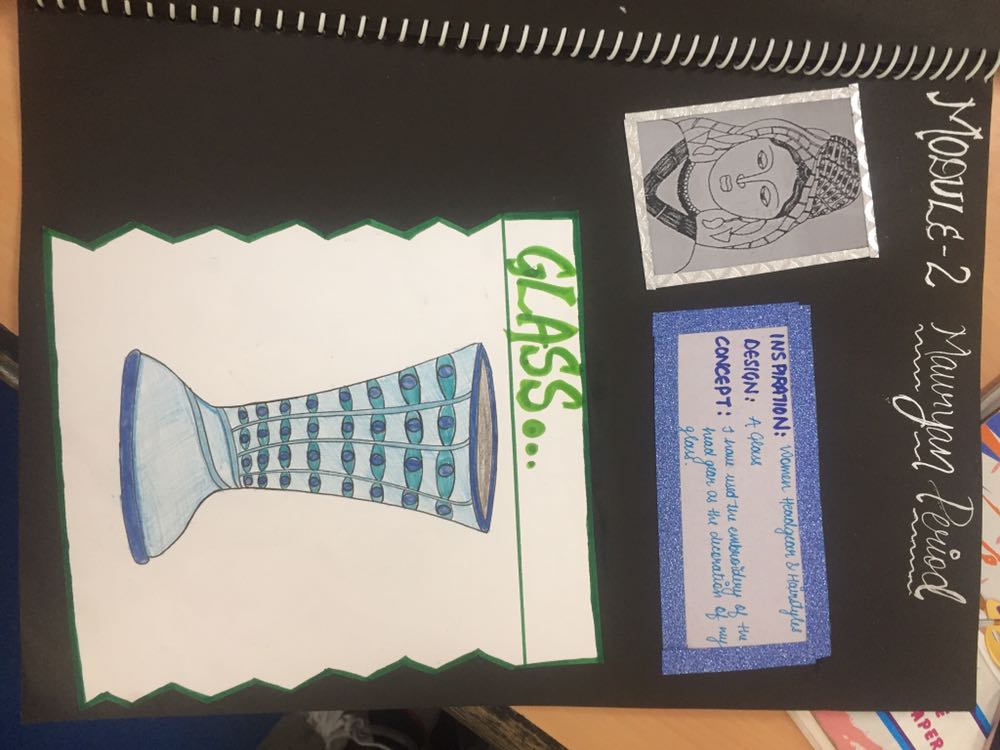 MODULE-2 Mauryan Period
INSPIRATION: Women Headgear & Hairstyles
DESIGN: A Glass
CONCEPT: I have used the embroidery of the
head gear as the decoration of my
glass.
GLASS...
APER